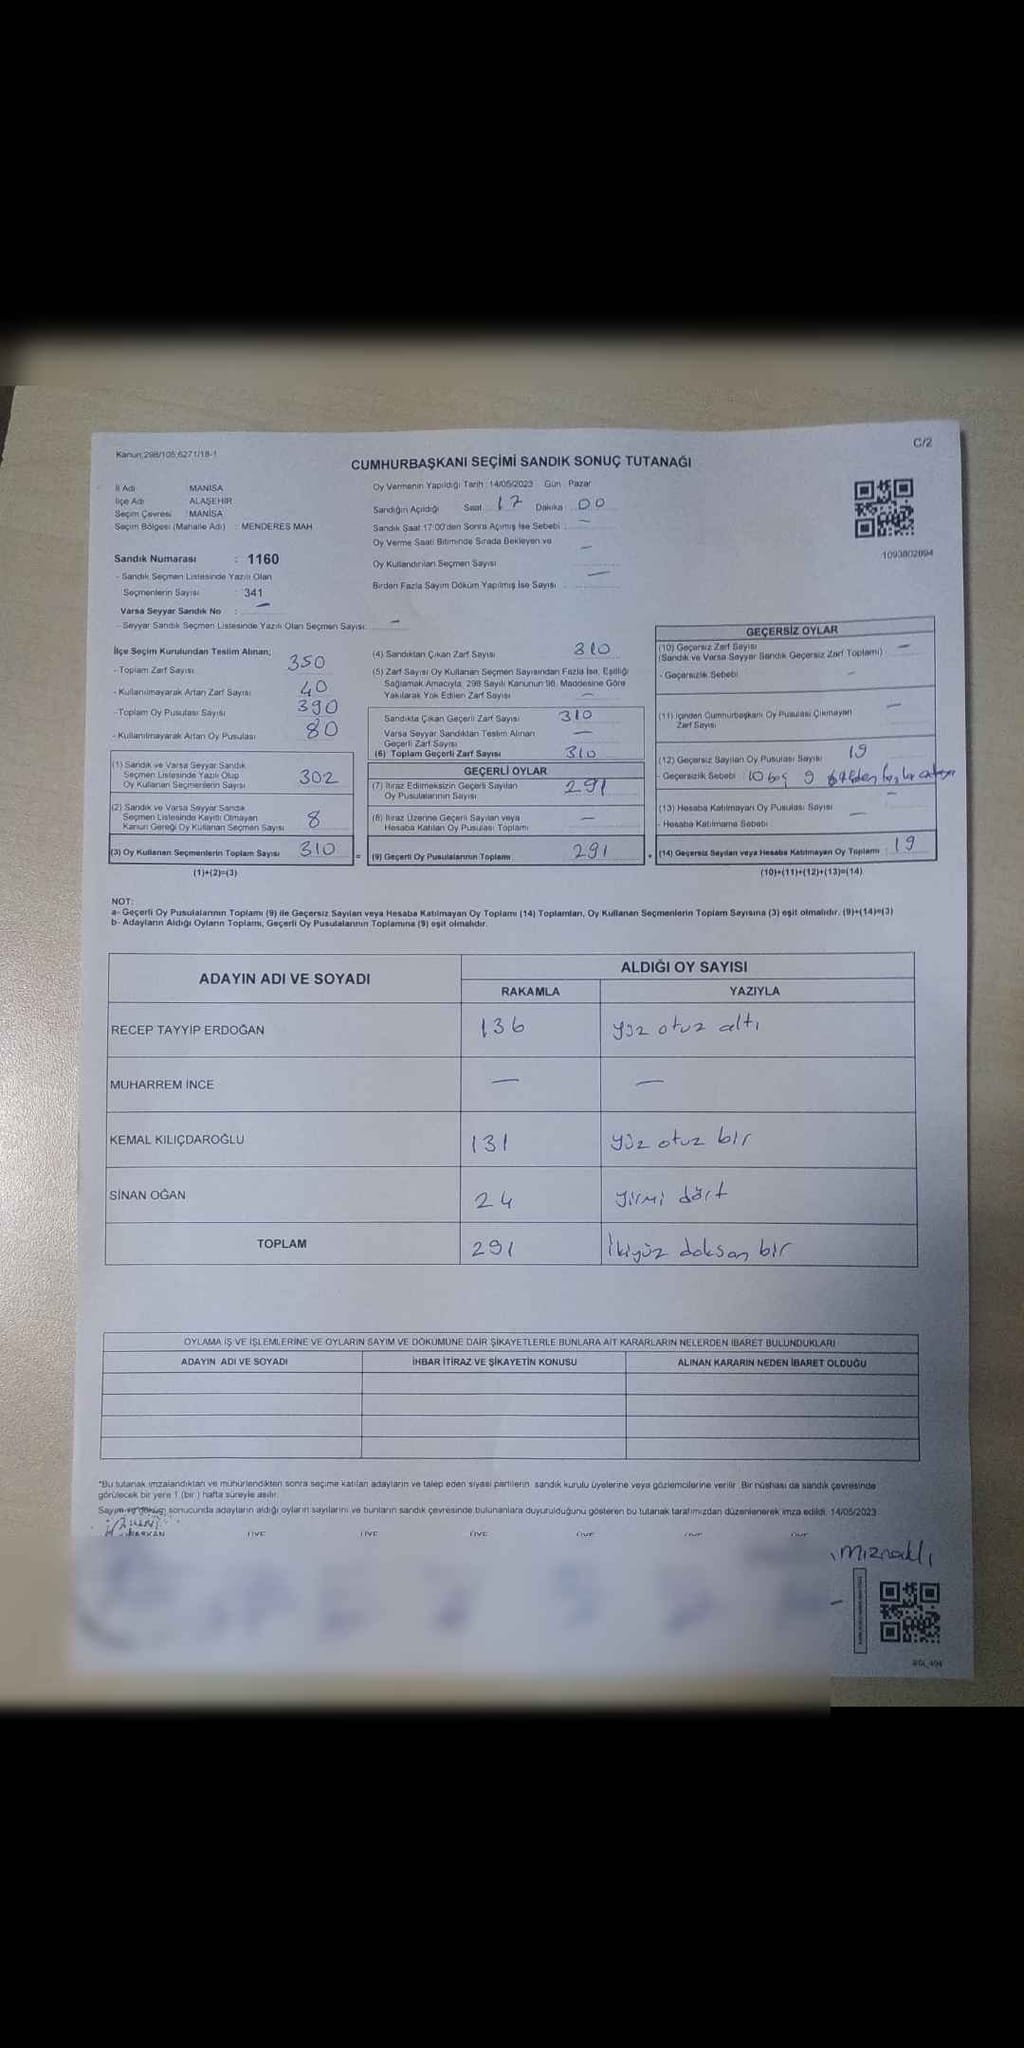 Kanun:298/105,6271/18-1
C/2
CUMHURBAŞKANI SEÇİMİ SANDIK SONUÇ TUTANAĞI
İl Adı MANİSA
İlçe Adı ALAŞEHİR
Seçim Çevresi MANİSA
Seçim Bölgesi (Mahalle Adı) : MENDERES MAH.
Oy Vermenin Yapıldığı Tarih : 14/05/2023 Gün Pazar
Sandığın Açıldığı Saat 17 Dakika 00
Sandık Saat 17:00'den Sonra Açılmış İse Sebebi : —
Oy Verme Saati Bitiminde Sırada Bekleyen ve
Oy Kullandırılan Seçmen Sayısı —
Birden Fazla Sayım Döküm Yapılmış İse Sayısı —
1093802094
Sandık Numarası : 1160
- Sandık Seçmen Listesinde Yazılı Olan
Seçmenlerin Sayısı : 341
Varsa Seyyar Sandık No : —
- Seyyar Sandık Seçmen Listesinde Yazılı Olan Seçmen Sayısı: —
İlçe Seçim Kurulundan Teslim Alınan;
-Toplam Zarf Sayısı 350
- Kullanılmayarak Artan Zarf Sayısı 40
-Toplam Oy Pusulası Sayısı 390
- Kullanılmayarak Artan Oy Pusulası 80
(1) Sandık ve Varsa Seyyar Sandık
Seçmen Listesinde Yazılı Olup
Oy Kullanan Seçmenlerin Sayısı 302
(2) Sandık ve Varsa Seyyar Sandık
Seçmen Listesinde Kayıtlı Olmayan
Kanun Gereği Oy Kullanan Seçmen Sayısı 8
(3) Oy Kullanan Seçmenlerin Toplam Sayısı 310
(1)+(2)=(3)
(4) Sandıktan Çıkan Zarf Sayısı 310
(5) Zarf Sayısı Oy Kullanan Seçmen Sayısından Fazla İse, Eşitliği
Sağlamak Amacıyla, 298 Sayılı Kanunun 98. Maddesine Göre
Yakılarak Yok Edilen Zarf Sayısı —
Sandıkta Çıkan Geçerli Zarf Sayısı 310
Varsa Seyyar Sandıktan Teslim Alınan
Geçerli Zarf Sayısı —
(6) Toplam Geçerli Zarf Sayısı 310
GEÇERLİ OYLAR
(7) İtiraz Edilmeksizin Geçerli Sayılan
Oy Pusulalarının Sayısı 291
(8) İtiraz Üzerine Geçerli Sayılan veya
Hesaba Katılan Oy Pusulası Toplamı —
= (9) Geçerli Oy Pusulalarının Toplamı 291
GEÇERSİZ OYLAR
(10) Geçersiz Zarf Sayısı —
(Sandık ve Varsa Seyyar Sandık Geçersiz Zarf Toplamı)
- Geçersizlik Sebebi —
(11) İçinden Cumhurbaşkanı Oy Pusulası Çıkmayan
Zarf Sayısı —
(12) Geçersiz Sayılan Oy Pusulası Sayısı 19
- Geçersizlik Sebebi 10 boş 9
(13) Hesaba Katılmayan Oy Pusulası Sayısı —
- Hesaba Katılmama Sebebi —
+ (14) Geçersiz Sayılan veya Hesaba Katılmayan Oy Toplamı : 19
(10)+(11)+(12)+(13)=(14)
NOT:
a- Geçerli Oy Pusulalarının Toplamı (9) ile Geçersiz Sayılan veya Hesaba Katılmayan Oy Toplamı (14) Toplamları, Oy Kullanan Seçmenlerin Toplam Sayısına (3) eşit olmalıdır. (9)+(14)=(3)
b- Adayların Aldığı Oyların Toplamı, Geçerli Oy Pusulalarının Toplamına (9) eşit olmalıdır.
ADAYIN ADI VE SOYADI ALDIĞI OY SAYISI
RAKAMLA YAZIYLA
RECEP TAYYİP ERDOĞAN 136 yüz otuz altı
MUHARREM İNCE — —
KEMAL KILIÇDAROĞLU 131 yüz otuz bir
SİNAN OĞAN 24 yirmi dört
TOPLAM 291 İkiyüz doksan bir
OYLAMA İŞ VE İŞLEMLERİNE VE OYLARIN SAYIM VE DÖKÜMÜNE DAİR ŞİKAYETLERLE BUNLARA AİT KARARLARIN NELERDEN İBARET BULUNDUKLARI
ADAYIN ADI VE SOYADI İHBAR İTİRAZ VE ŞİKAYETİN KONUSU ALINAN KARARIN NEDEN İBARET OLDUĞU
*Bu tutanak imzalandıktan ve mühürlendikten sonra seçime katılan adayların ve talep eden siyasi partilerin sandık kurulu üyelerine veya gözlemcilerine verilir. Bir nüshası da sandık çevresinde
görülecek bir yere 1 (bir ) hafta süreyle asılır.
Sayım ve döküm sonucunda adayların aldığı oyların sayılarını ve bunların sandık çevresinde bulunanlara duyurulduğunu gösteren bu tutanak tarafımızdan düzenlenerek imza edildi. 14/05/2023
BAŞKAN ÜYE ÜYE ÜYE ÜYE ÜYE ÜYE